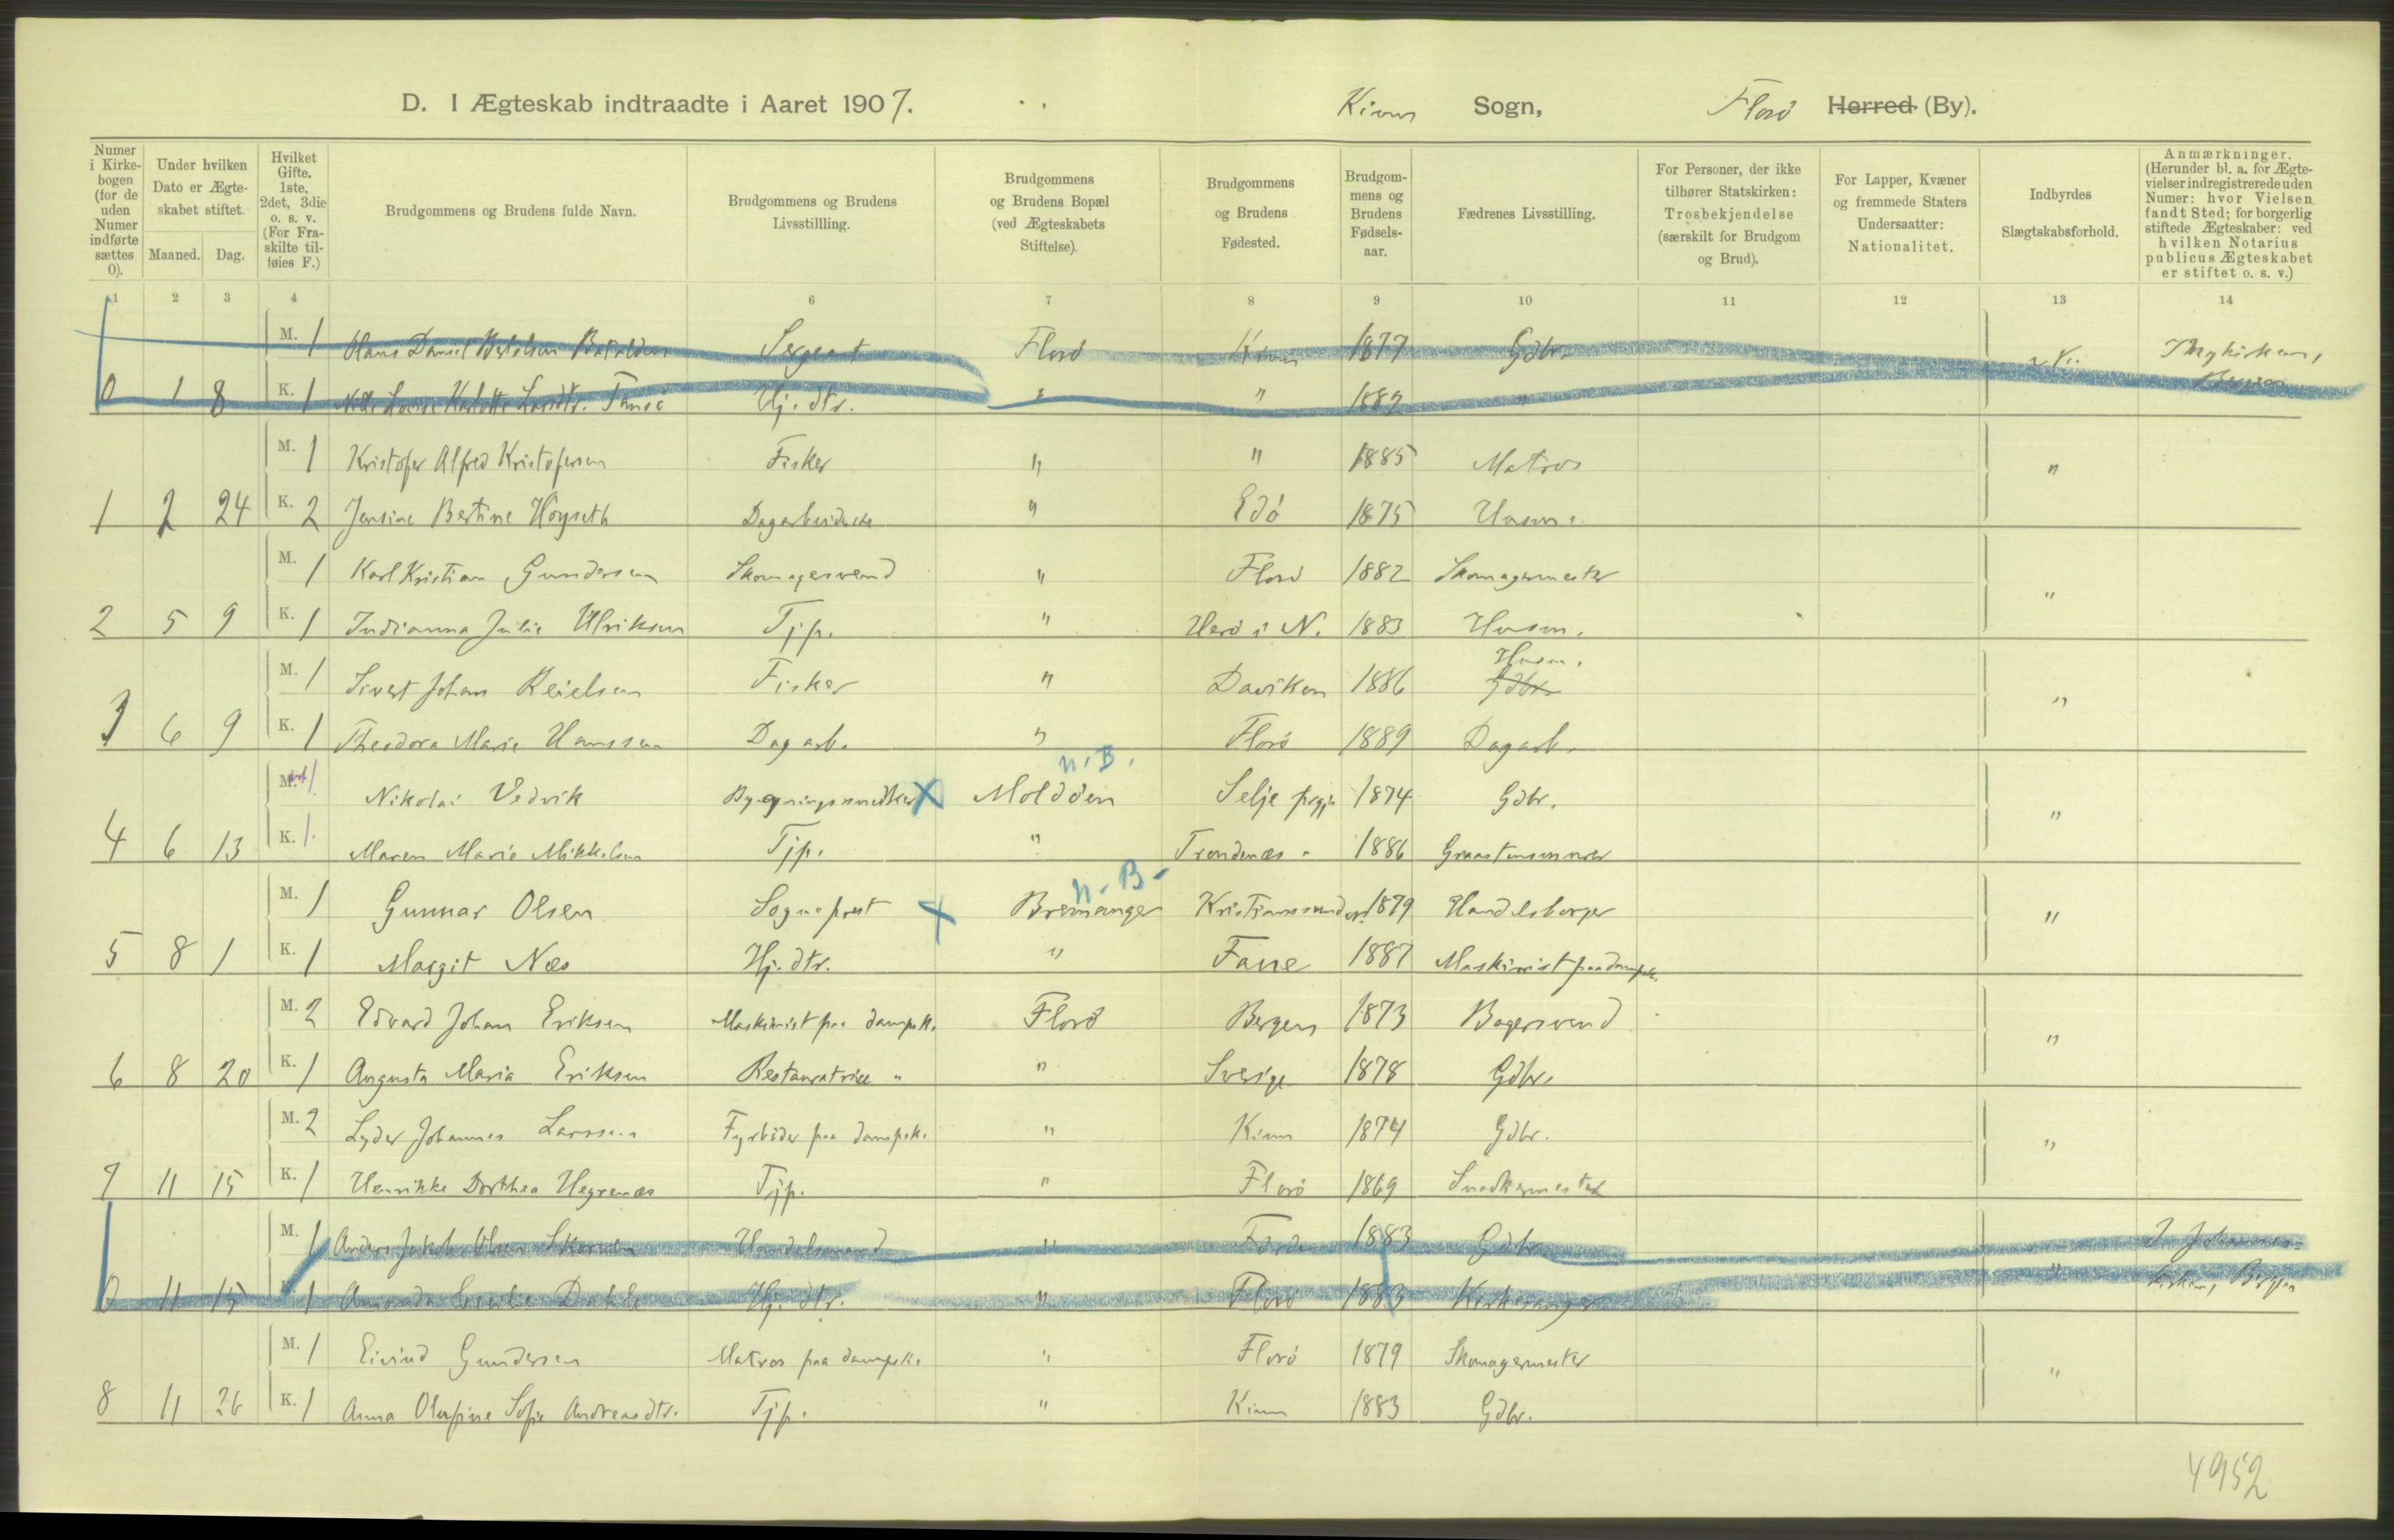 D. I Ægteskab indtraadte i Aaret 1907. Kinn Sogn, Florø Herred (By).
Numer i Kirkebogen (for de uden Numer indførte sættes 0).
Under hvilken Dato er Ægteskabet stiftet.
Maaned. Dag.
Hvilket Gifte. 1ste, 2det, 3die o. s. v. (For Fraskilte tilføies F.)
Brudgommens og Brudens fulde Navn.
Brudgommens og Brudens Livsstillling.
Brudgommens og Brudens Bopæl (ved Ægteskabets Stiftelse).
Brudgommens og Brudens Fødested.
Brudgommens og Brudens Fødselsaar.
Fædrenes Livsstilling.
For Personer, der ikke tilhører Statskirken: Trosbekjendelse (særskilt for Brudgom og Brud).
For Lapper, Kvæner og fremmede Staters Undersaatter: Nationalitet.
Indbyrdes Slægtskabsforhold.
Anmærkninger. (Herunder bl. a. for Ægtevielser indregistrerede uden Numer: hvor Vielsen fandt Sted; for borgerlig stiftede Ægteskaber: ved hvilken Notarius publicus Ægteskabet er stiftet o. s. v.)
1 2 3 4 6 7 8 9 10 11 12 13 14
M. 1 Hans Daniel Sergeant Florø Kinn 1877 Gdbr.
0 1 8 K. 1 Hj. dtr. " " 1882 " Bergen
M. 1 Kristofer Alfred Kristofersen Fisker " " 1885 Matros "
1 2 24 K. 2 Jensine Bertine Høyseth Dagarbeiderske " Edø 1875 Husm.
M. 1 Karl Kristian Gundersen Skomagersvend " Florø 1882 Skomagermester
2 5 9 K. 1 Indianna Julie Ulriksen Tjp. " Herø i N. 1883 Husm. "
Husm.
M. 1 Sivert Johan Reielsen Fisker " Daviken 1886 Gdbr.
3 6 9 K. 1 Theodora Marie Hanssen Dagarb. " Florø 1889 Dagarb. "
N. B.
M. 1 Nikolai Vedvik Bygningssnedker X Moldøen Selje prgj. 1874 Gdbr. "
4 6 13 K. 1 Maren Marie Mikkelsen Tjp. " Trondenæs " 1886 Graastensmurer
N. B.
M. 1 Gunnar Olsen Sogneprest X Bremanger Kristianssund 1879 Handelsborger "
5 8 1 K. 1 Margit Næs Hj. dtr. " Fane 1887 Maskinist paa dampsk.
M. 2 Edvard Johan Eriksen Maskinist paa dampsk. Florø Bergen 1873 Bagersvend
6 8 20 K. 1 Augusta Maria Eriksen Restauratrice " " Sverige 1878 Gdbr. "
M. 2 Lyder Johannes Larssen Fyrbøder paa dampsk. " Kinn 1874 Gdbr. "
7 11 15 K. 1 Henrikke Dorthea Hegrenæs Tjp. " Florø 1869 Snedkermester
M. 1 Anders Jakob Olsen Handelsmand " Førde 1883 Gdbr. I Johannes-
0 11 15 K. 1 Amanda Cecilie Dahle Hj. dtr. " Florø 1883 Kirkesanger " kirken, Bergen
M. 1 Eivind Gundersen Matros paa dampsk. " Florø 1879 Skomagermester "
8 11 26 K. 1 Anna Olufine Sofie Andreasdtr. Tjp. " Kinn 1883 Gdbr.
4952